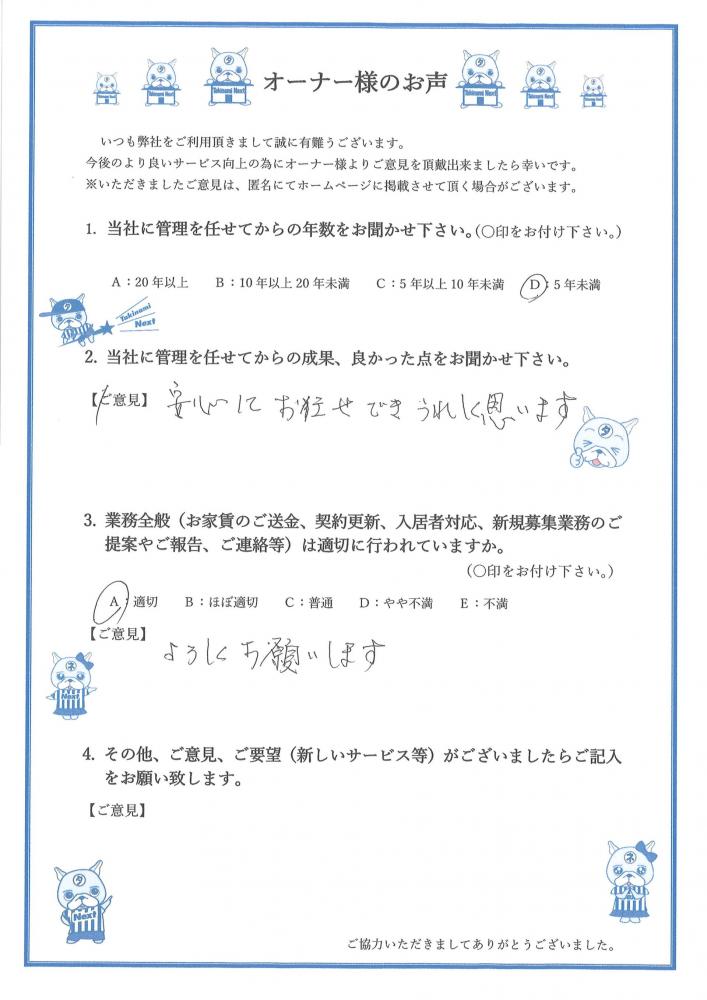 オーナー様のお声
タ
タ
タ
タ
Takinami Next
Takinami Next
Takinami Next
Takinami Next
いつも弊社をご利用頂きまして誠に有難うございます。
今後のより良いサービス向上の為にオーナー様よりご意見を頂戴出来ましたら幸いです。
※いただきましたご意見は、匿名にてホームページに掲載させて頂く場合がございます。
1. 当社に管理を任せてからの年数をお聞かせ下さい。(〇印をお付け下さい。)
A:20年以上 B:10年以上20年未満 C:5年以上10年未満 D:5年未満
タ
Takinami
Next
2. 当社に管理を任せてからの成果、良かった点をお聞かせ下さい。
【ご意見】 安心してお任せできうれしく思います
タ
3. 業務全般(お家賃のご送金、契約更新、入居者対応、新規募集業務のご
提案やご報告、ご連絡等)は適切に行われていますか。
(〇印をお付け下さい。)
A:適切 B:ほぼ適切 C:普通 D:やや不満 E:不満
【ご意見】
よろしくお願いします
ネ
Next
4. その他、ご意見、ご要望(新しいサービス等)がございましたらご記入
をお願い致します。
【ご意見】
タ
Next
ネ
ご協力いただきましてありがとうございました。